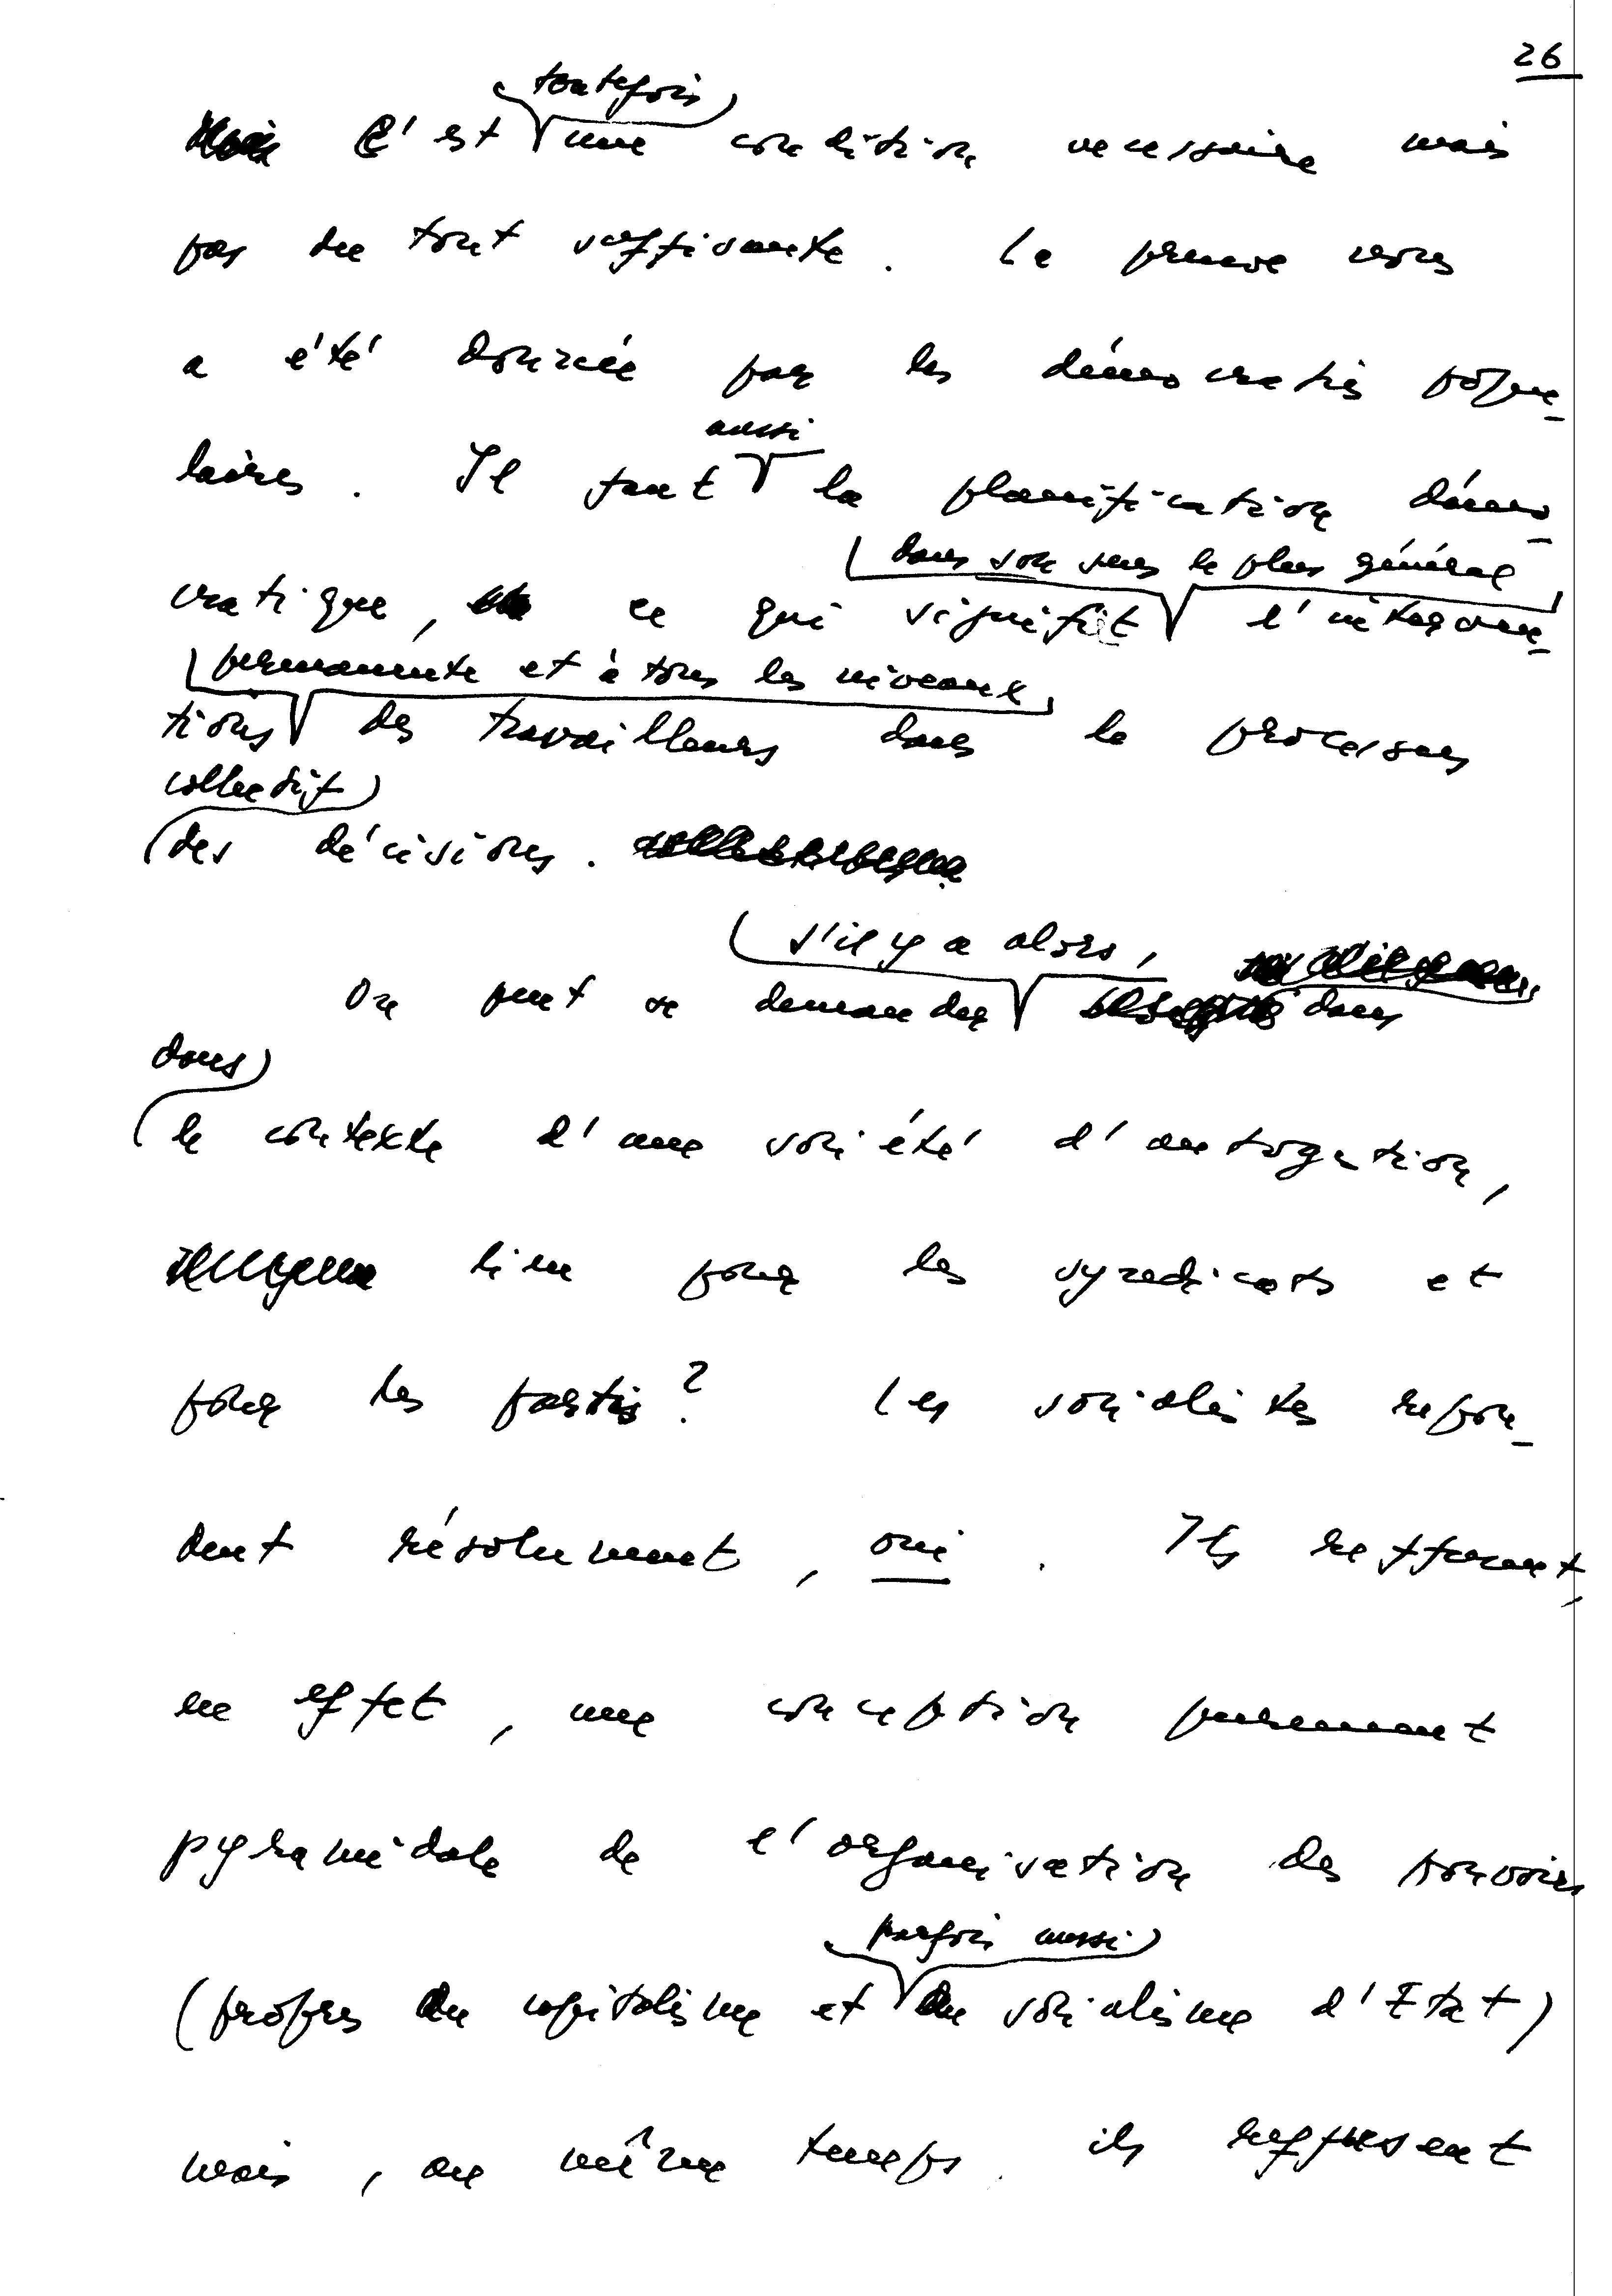 26
toutefois
C'est une condition necessaire mais
pas du tout suffisante. La preuve nous
a été donnée par les démocraties popu-
laires. Il faut la planification démo-
aussi
cratique, ce qui signifit l'interven-
dans son sens le plus général
tions des travailleurs dans le processus
permanente et à tous les niveaux
collectif
des décisions.
s'il y a alors,
On peut se demander dans
dans
le contexte d'une société d'autogestion,
lieu pour les syndicats et
pour les partis? Les socialistes repon-
dent résolument, oui. Ils refusent,
en effet, une conception purement
pyramidale de l'organisation des pouvoirs
parfois aussi
(propres du capitalisme et du socialisme d'Etat)
mais, au même temps ils refusent